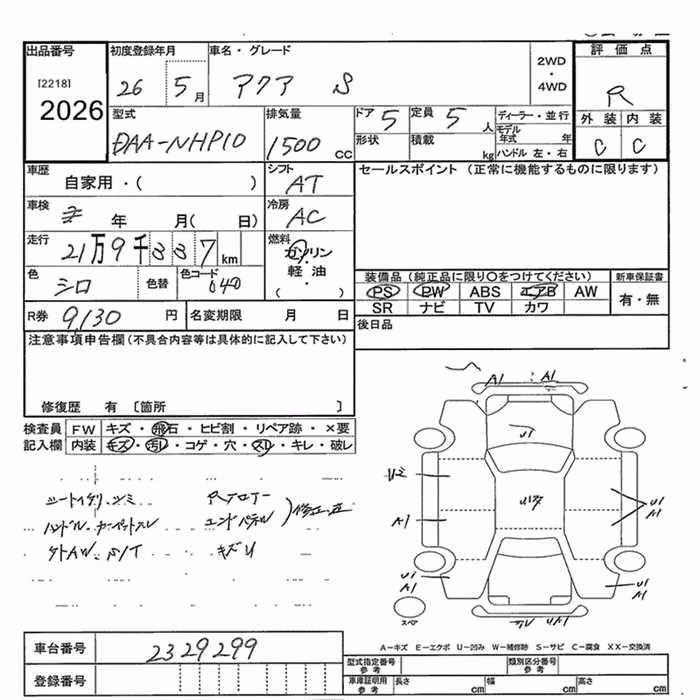 出品番号 初度登録年月 車名・グレード 2WD ・ 4WD 評価点
[2218] 2026 26 5月 アクア S R
型式 排気量 ドア 5 定員 5人 ディーラー・並行 外装 内装
DAA-NHP10 1500cc 形状 積載 kg モデル年式 年 ハンドル 左・右 C C
車歴 自家用・( ) シフト AT セールスポイント (正常に機能するものに限ります)
車検 年 月( 日) 冷房 AC
走行 21万9千337km 燃料 ガソリン・軽油・( )
色 シロ 色替 色コード 040 装備品 (純正品に限り○をつけてください) 新車保証書
PS PW ABS エアB AW 有・無
SR ナビ TV カワ
R券 9,130円 名変期限 月 日 後日品
注意事項申告欄 (不具合内容等は具体的に記入して下さい)
修復歴 有 〔箇所 〕
検査員記入欄 FW キズ・飛石・ヒビ割・リペア跡・×要
内装 キズ・汚レ・コゲ・穴・スレ・キレ・破レ
A1 A1
U1
A1
U1 A1
U1 A1
U1 A1
シートイタリ・シミ Rフロアー
ハンドル・カーペットスレ エンドパネル 修正止
キズU
A－キズ E－エクボ U－凹み W－補修跡 S－サビ C－腐食 XX－交換済
車台番号 2329299
登録番号
型式指定番号 参考 類別区分番号 参考
車庫証明用 参考 長さ cm 幅 cm 高さ cm